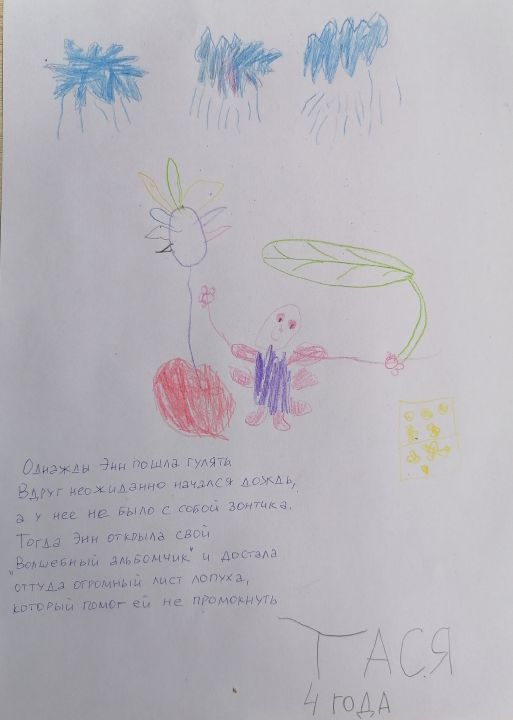 Однажды Энн пошла гулять
Вдруг неожиданно начался дождь,
а у нее не было с собой зонтика.
Тогда Энн открыла свой
"Волшебный альбомчик" и достала
оттуда огромный лист лопуха,
который помог ей не промокнуть
ТАСЯ
4 года